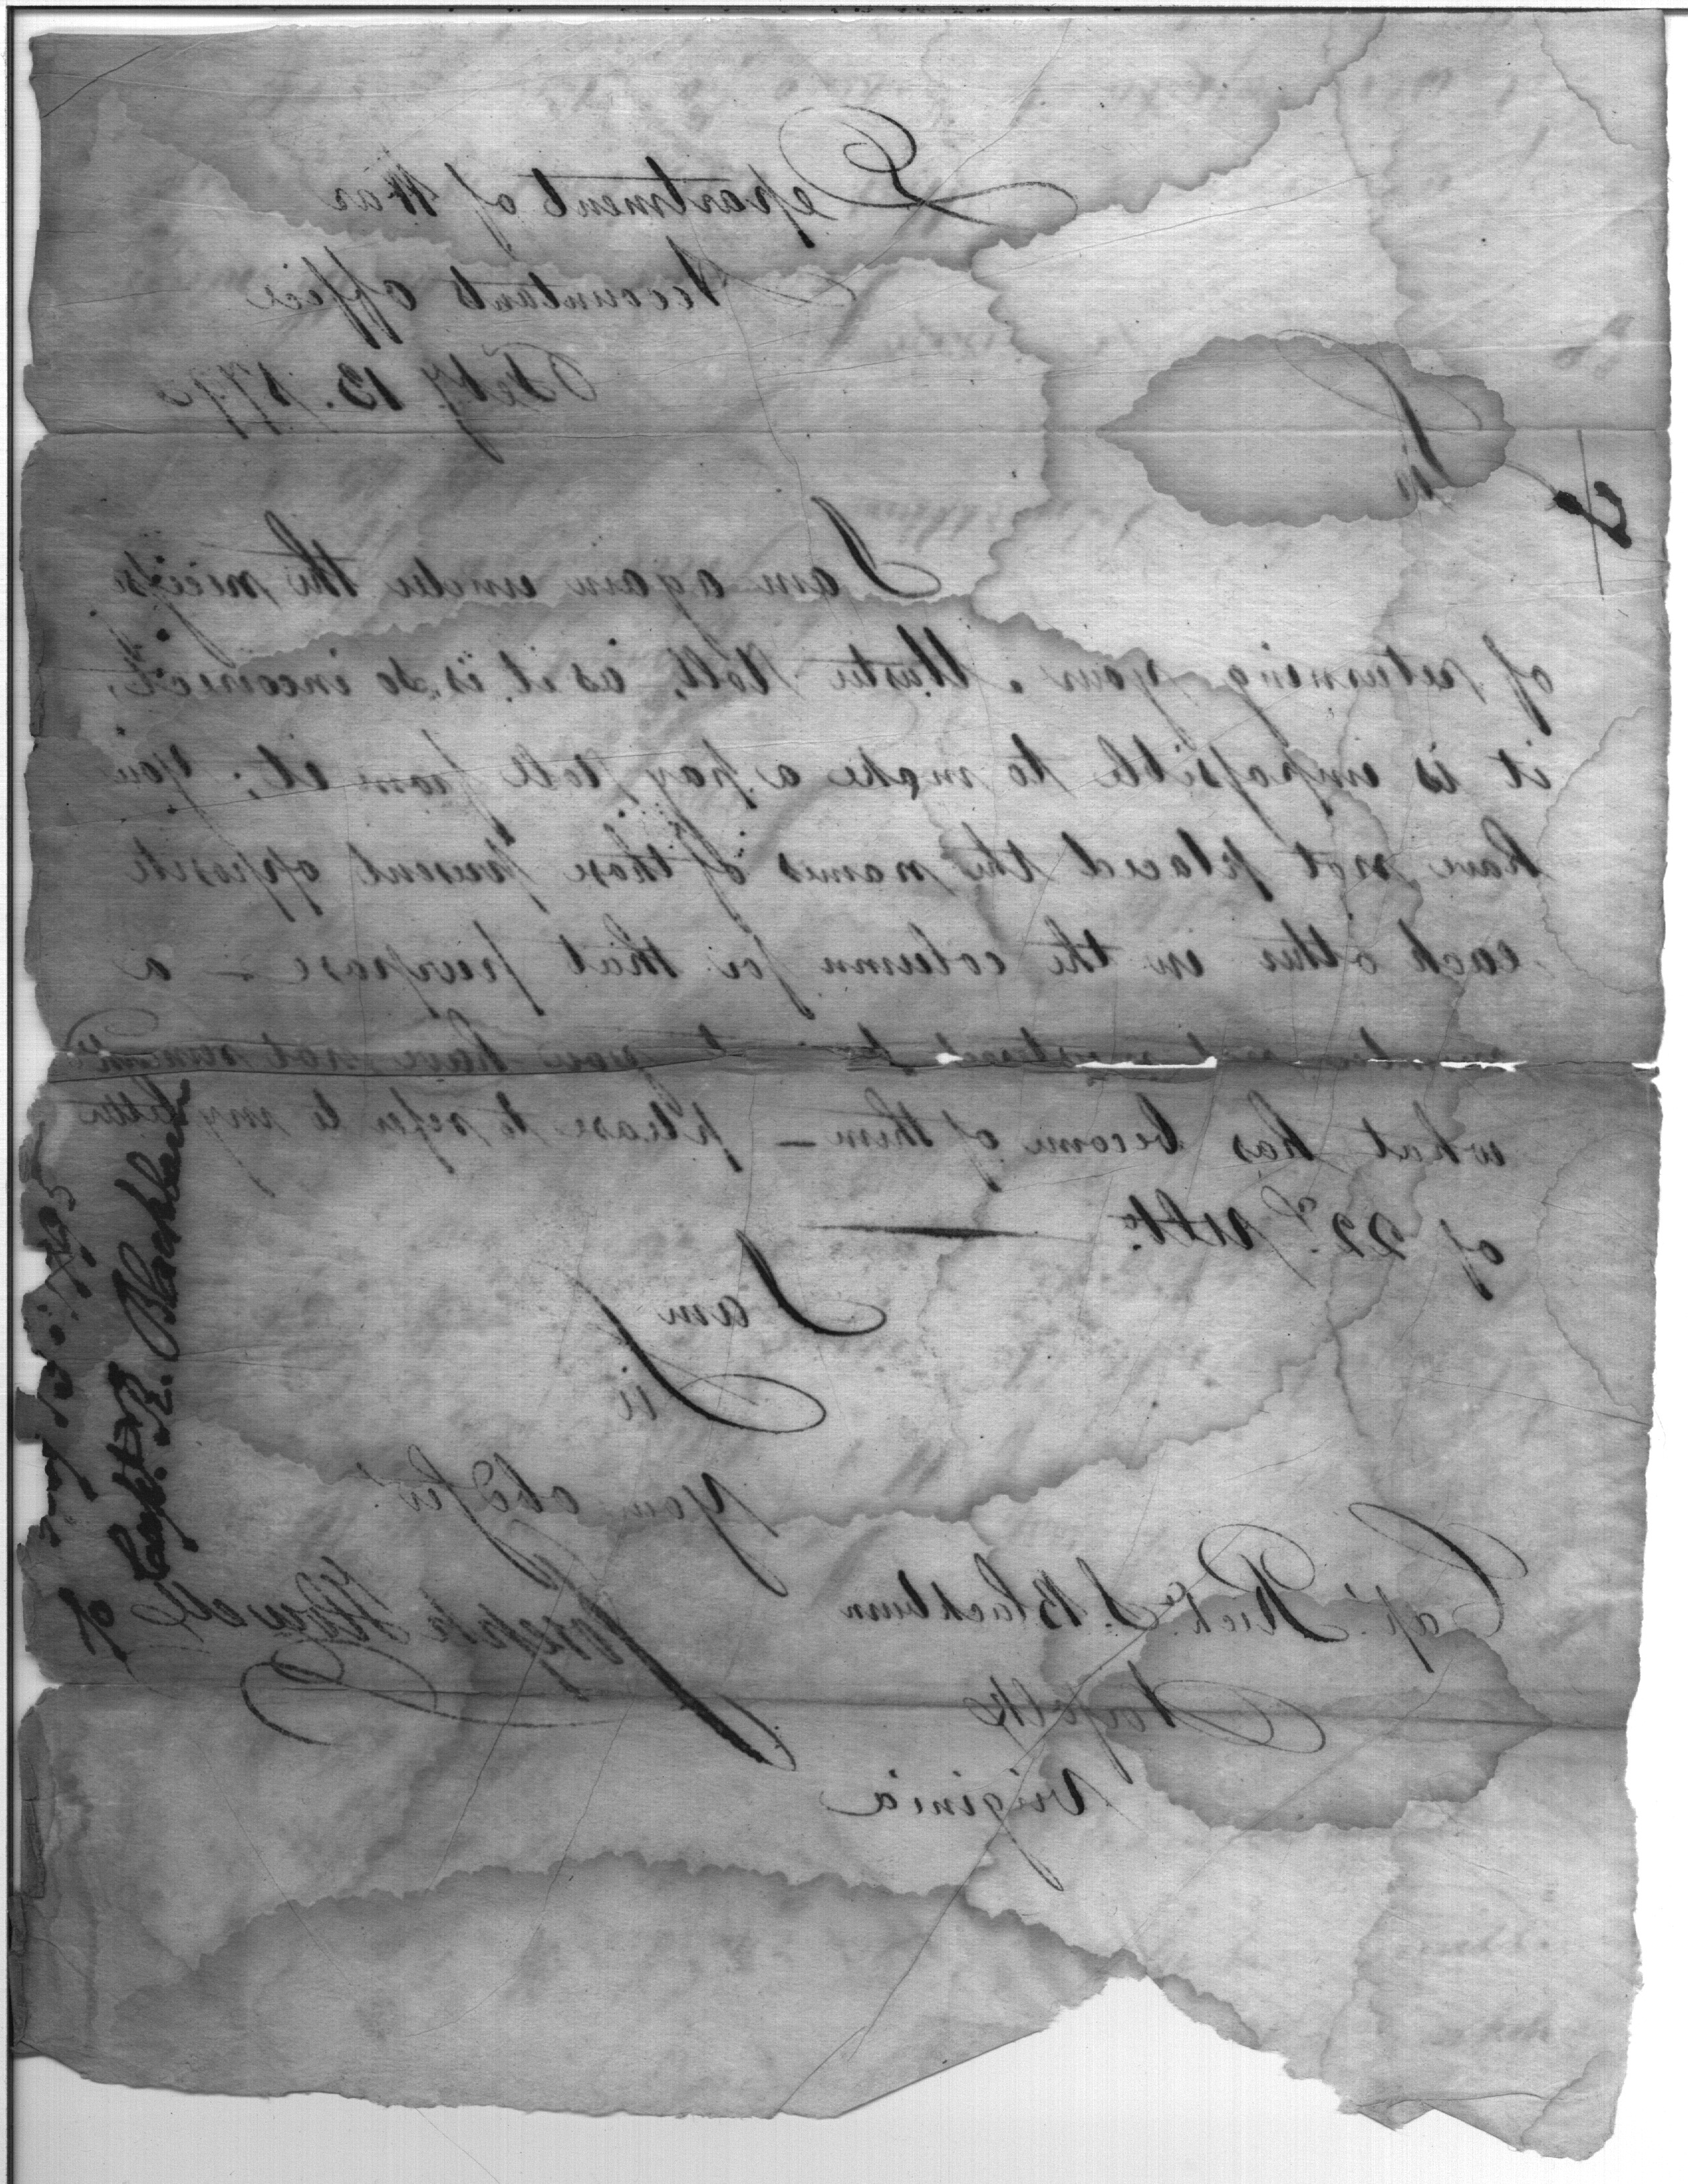 Department of War
Accountants office
Feby 13. 1795
Sir
I am again under the necessy
of returning your Muster Roll, as it is so incorrect,
it is impossible to make a pay Roll from it; you
have not placed the names of those present opposite
each other in the column for that purpose – a
you have not
what has become of them – please to refer to my letter
of 22d. Ulto.
I am
Sir
Your obed Servt
Joseph Howell
Capt. Richd. S. Blackburn
Norfolk
Virginia
To
Capt. R. Blackburn